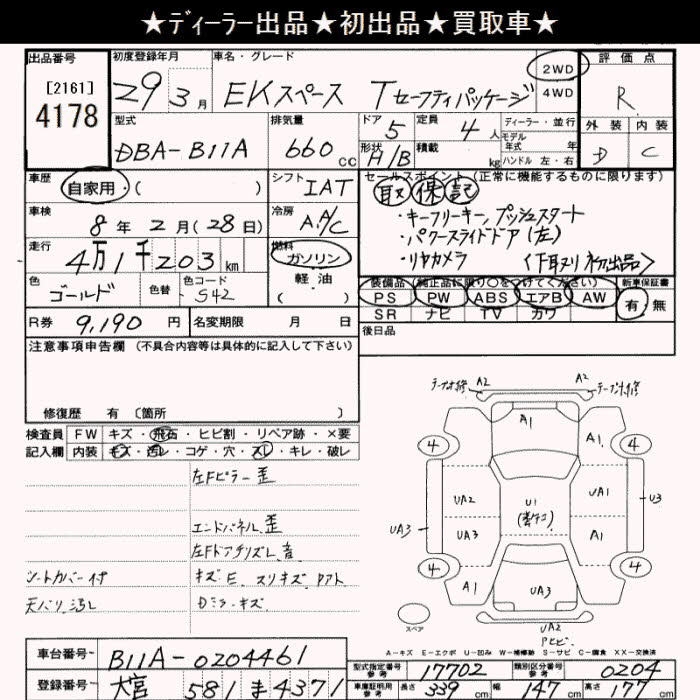 ★ディーラー出品★初出品★買取車★
出品番号
[2161]
4178
初度登録年月
29 3月
車名・グレード
EKスペース Tセーフティパッケージ
2WD
4WD
評価点
R
外装 内装
D C
型式
DBA-B11A
排気量
660 CC
ドア 5
形状 H/B
定員 4 人
積載 kg
ディーラー・並行
モデル年式 年
ハンドル 左・右
車歴
自家用・( )
シフト IAT
車検
8年 2月(28日)
冷房 A/C
走行
4万1千203 km
燃料
ガソリン
軽油
色 ゴールド
色替
色コード S42
R券 9,190 円
名変期限 月 日
セールスポイント(正常に機能するものに限ります)
取 保 記
・キーフリーキー、プッシュスタート
・パワースライドドア(左)
・リヤカメラ
〈下取り初出品〉
装備品(純正品に限り○をつけてください)
新車保証書
PS PW ABS エアB AW
有 無
SR ナビ TV カワ
後日品
注意事項申告欄(不具合内容等は具体的に記入して下さい)
修復歴 有 〔箇所 〕
検査員記入欄
FW キズ・飛石・ヒビ割・リペア跡・×要
内装 キズ・汚レ・コゲ・穴・スレ・キレ・破レ
左Fピラー歪
エンドパネル歪
左Fドアチリズレ、音
シートカバー付
キズ、E、スリキズ
天バリ汚レ
Dミラーキズ
A2
A2
A1
4
A1
4
UA2
U1
UA1
U3
UA3
UA3
A1
4
4
A1
UA3
UA2
スペア
A-キズ E-エクボ U-凹み W-補修跡 S-サビ C-腐食 XX-交換済
車台番号
B11A-0204461
登録番号
大宮 581 ま 4371
型式指定番号 参考
17702
類別区分番号 参考
0204
車庫証明用 参考
長さ 339 cm
幅 147 cm
高さ 177 cm